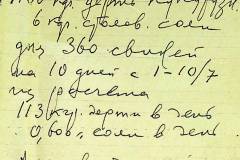 6 кгр. столов. соли
для 360 свиней
на 10 дней с 1-10/7
из расчета
113 кгр. дерти в день
0,600 „ соли в день